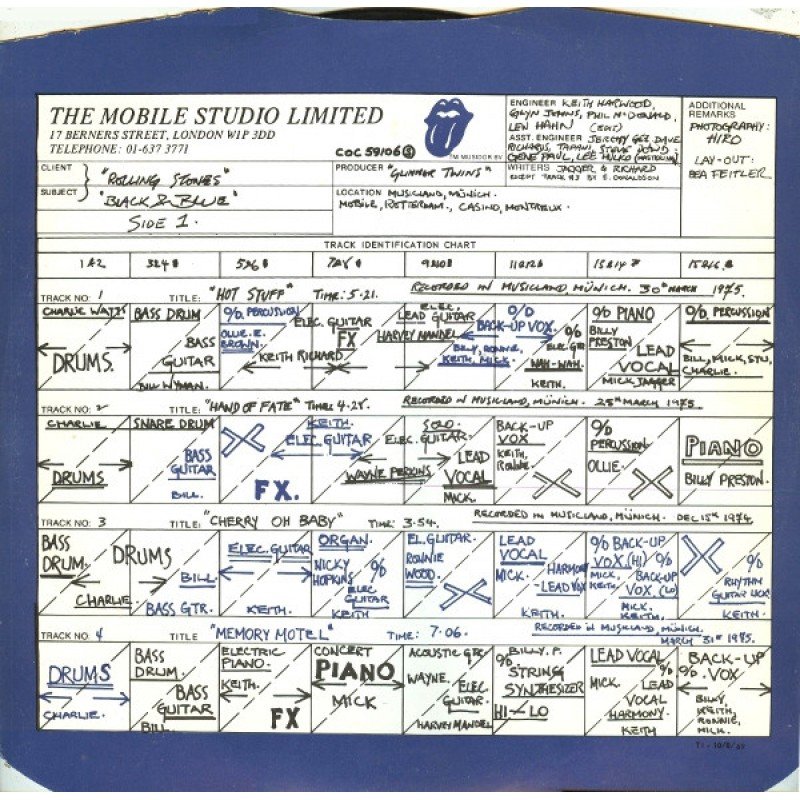 THE MOBILE STUDIO LIMITED
17 BERNERS STREET, LONDON W1P 3DD
TELEPHONE: 01-637 3771
COC 59106 S
ENGINEER KEITH HARWOOD,
GLYN JOHNS, PHIL McDONALD,
LEW HAHN (EDIT)
ASST. ENGINEER JEREMY GEE, DAVE
RICHARDS, TAPANI, STEVE DOWD:
GENE PAUL, LEE HULKO (MASTERING)
WRITERS JAGGER & RICHARD
EXCEPT TRACK #3 BY E. DONALDSON
ADDITIONAL
REMARKS
PHOTOGRAPHY:
HIRO
LAY-OUT:
BEA FEITLER
CLIENT "ROLLING STONES"
SUBJECT "BLACK & BLUE"
SIDE 1.
PRODUCER "GLIMMER TWINS"
LOCATION MUSICLAND, MÜNICH.
MOBILE, ROTTERDAM., CASINO, MONTREUX.
TRACK IDENTIFICATION CHART
1 & 2 3 & 4 5 & 6 7 & 8 9 & 10 11 & 12 15 & 16
TRACK NO: 1 TITLE: "HOT STUFF" TIME: 5.21. RECORDED IN MUSICLAND, MÜNICH. 30TH MARCH 1975.
CHARLIE WATTS
DRUMS.
BASS DRUM
BASS
GUITAR
BILL WYMAN.
O/D PERCUSSION
OLLIE. E.
BROWN.
ELEC. GUITAR
FX
KEITH RICHARD.
ELEC.
LEAD GUITAR
HARVEY MANDEL
O/D
BACK-UP VOX.
BILLY, RONNIE,
KEITH, MICK.
O/D
ELEC GTR
WAH-WAH.
KEITH.
O/D PIANO
BILLY
PRESTON
LEAD
VOCAL
MICK JAGGER
O/D PERCUSSION
BILL, MICK, STU,
CHARLIE.
TRACK NO: 2 TITLE: "HAND OF FATE" TIME: 4.28. RECORDED IN MUSICLAND, MÜNICH. 25TH MARCH 1975.
CHARLIE
DRUMS
SNARE DRUM
BASS
GUITAR
BILL.
KEITH.
ELEC GUITAR
FX.
ELEC. GUITAR.
WAYNE PERKINS
SOLO.
LEAD
VOCAL
MICK.
BACK-UP
VOX
KEITH,
RONNIE.
O/D
PERCUSSION
OLLIE.
PIANO
BILLY PRESTON.
TRACK NO: 3 TITLE: "CHERRY OH BABY" TIME: 3.54. RECORDED IN MUSICLAND, MÜNICH. DEC 15TH 1974.
BASS
DRUM.
DRUMS
CHARLIE.
BILL.
BASS GTR.
ELEC. GUITAR
KEITH.
ORGAN.
NICKY
HOPKINS
O/D
ELEC
GUITAR
KEITH
EL. GUITAR.
RONNIE
WOOD.
LEAD
VOCAL
MICK.
HARMONY
-LEAD VOX
KEITH.
O/D BACK-UP
VOX. (HI)
MICK,
KEITH.
O/D
BACK-UP
VOX. (LO)
MICK,
KEITH.
O/D
RHYTHM
GUITAR LICK
KEITH.
TRACK NO: 4 TITLE "MEMORY MOTEL" TIME: 7.06. RECORDED IN MUSICLAND, MÜNICH.
MARCH 31ST 1975.
DRUMS
CHARLIE.
BASS
DRUM.
BASS
GUITAR
BILL
ELECTRIC
PIANO.
KEITH.
FX
CONCERT
PIANO
MICK
ACOUSTIC GTR
WAYNE.
ELEC.
GUITAR.
HARVEY MANDEL
BILLY. P.
O/D
STRING
SYNTHESIZER
HI-LO
LEAD VOCAL
MICK.
O/D
LEAD
VOCAL
HARMONY.
KEITH
BACK-UP
O/D VOX.
BILLY,
KEITH,
RONNIE,
MICK.